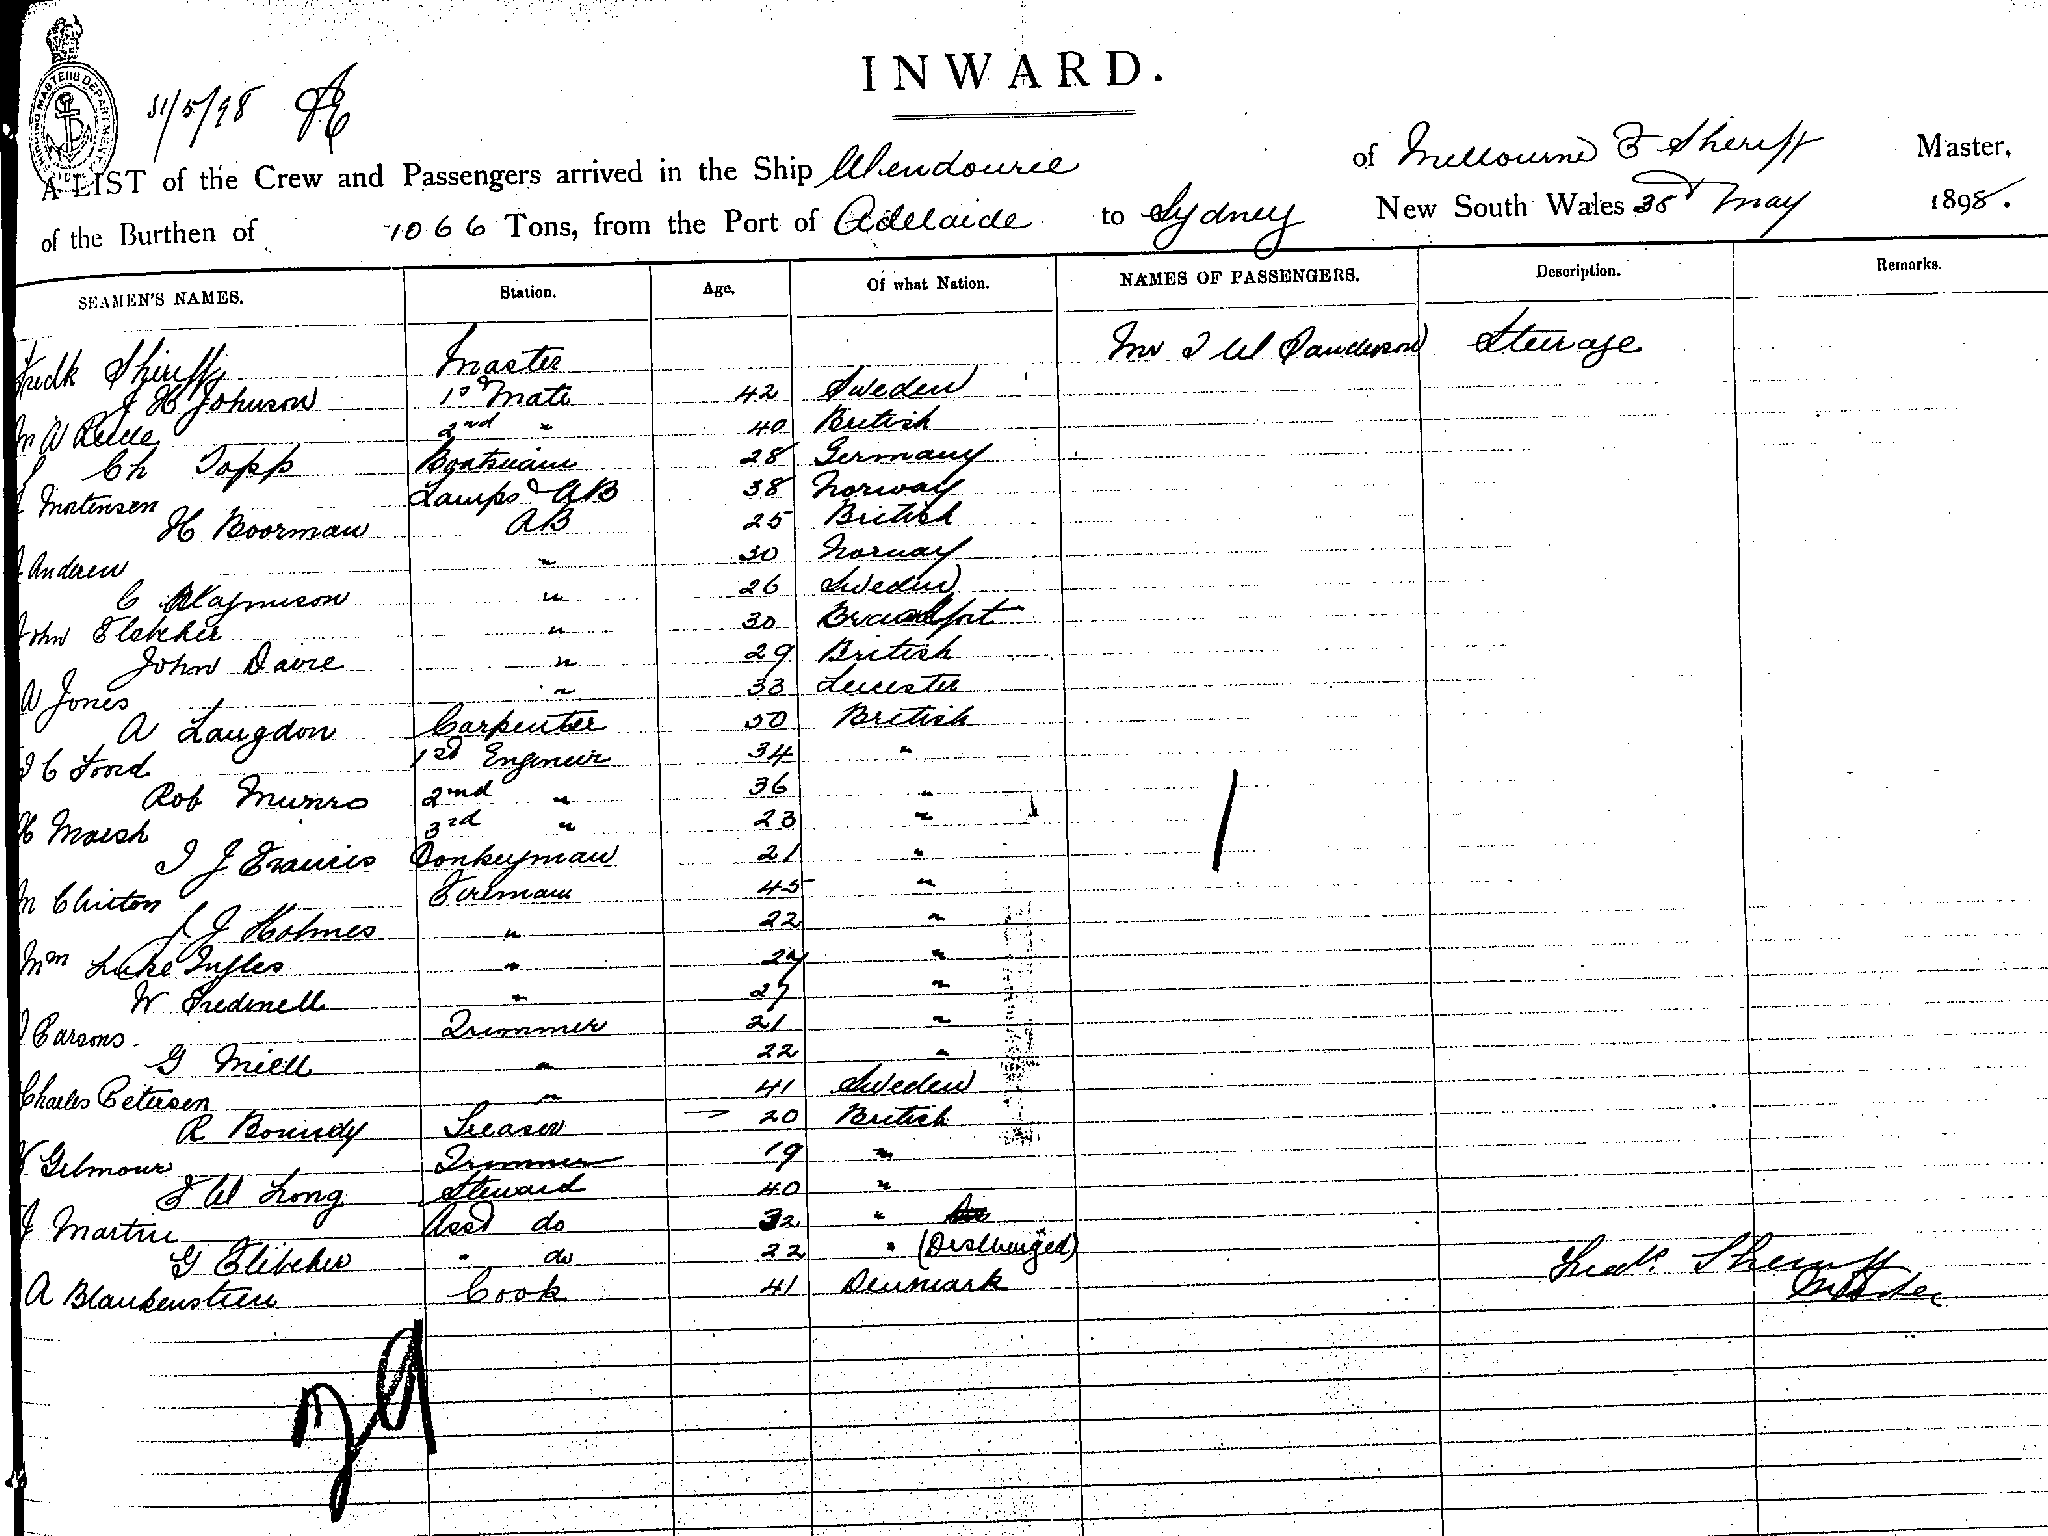 SHIPPING MASTERS DEPARTMENT
31/5/98
INWARD.
A LIST of the Crew and Passengers arrived in the Ship Wendouree of Melbourne F Sheriff Master,
of the Burthen of 1066 Tons, from the Port of Adelaide to Sydney New South Wales May 1898.
SEAMEN'S NAMES. Station. Age. Of what Nation. NAMES OF PASSENGERS. Description. Remarks.
Fredk Sheriff Master Mr W Sanderson Steerage
J H Johnson 1st Mate 42 Sweden
2nd " 40 British
Ch Topp Boatswain 28 Germany
Mortensen Lamps & AB 38 Norway
H Boorman AB 25 British
Andersen " 30 Norway
C Magnusson " 26 Sweden
John Fletcher " 30
John Davie " 29 British
W Jones " 33 Leicester
A Langdon Carpenter 50 British
C Foord 1st Engineer 34 "
Rob Munro 2nd " 36 "
H Marsh 3rd " 23 "
J Francis Donkeyman 21 "
M Clinton Fireman 45 "
J Holmes " 22 "
Luke Ingles " 24 "
W Tredinell " 27 "
Carsons. Trimmer 21 "
G Miell " 22 "
Charles Petersen " 41 Sweden
R Boundy Greaser 20 British
Gilmour Trimmer 19 "
W Long Steward 40 "
J Martin Asst do 32 "
G Fletcher " do 22 " (Discharged)
A Blankenstein Cook 41 Denmark
Fredk. Sheriff
Master
29